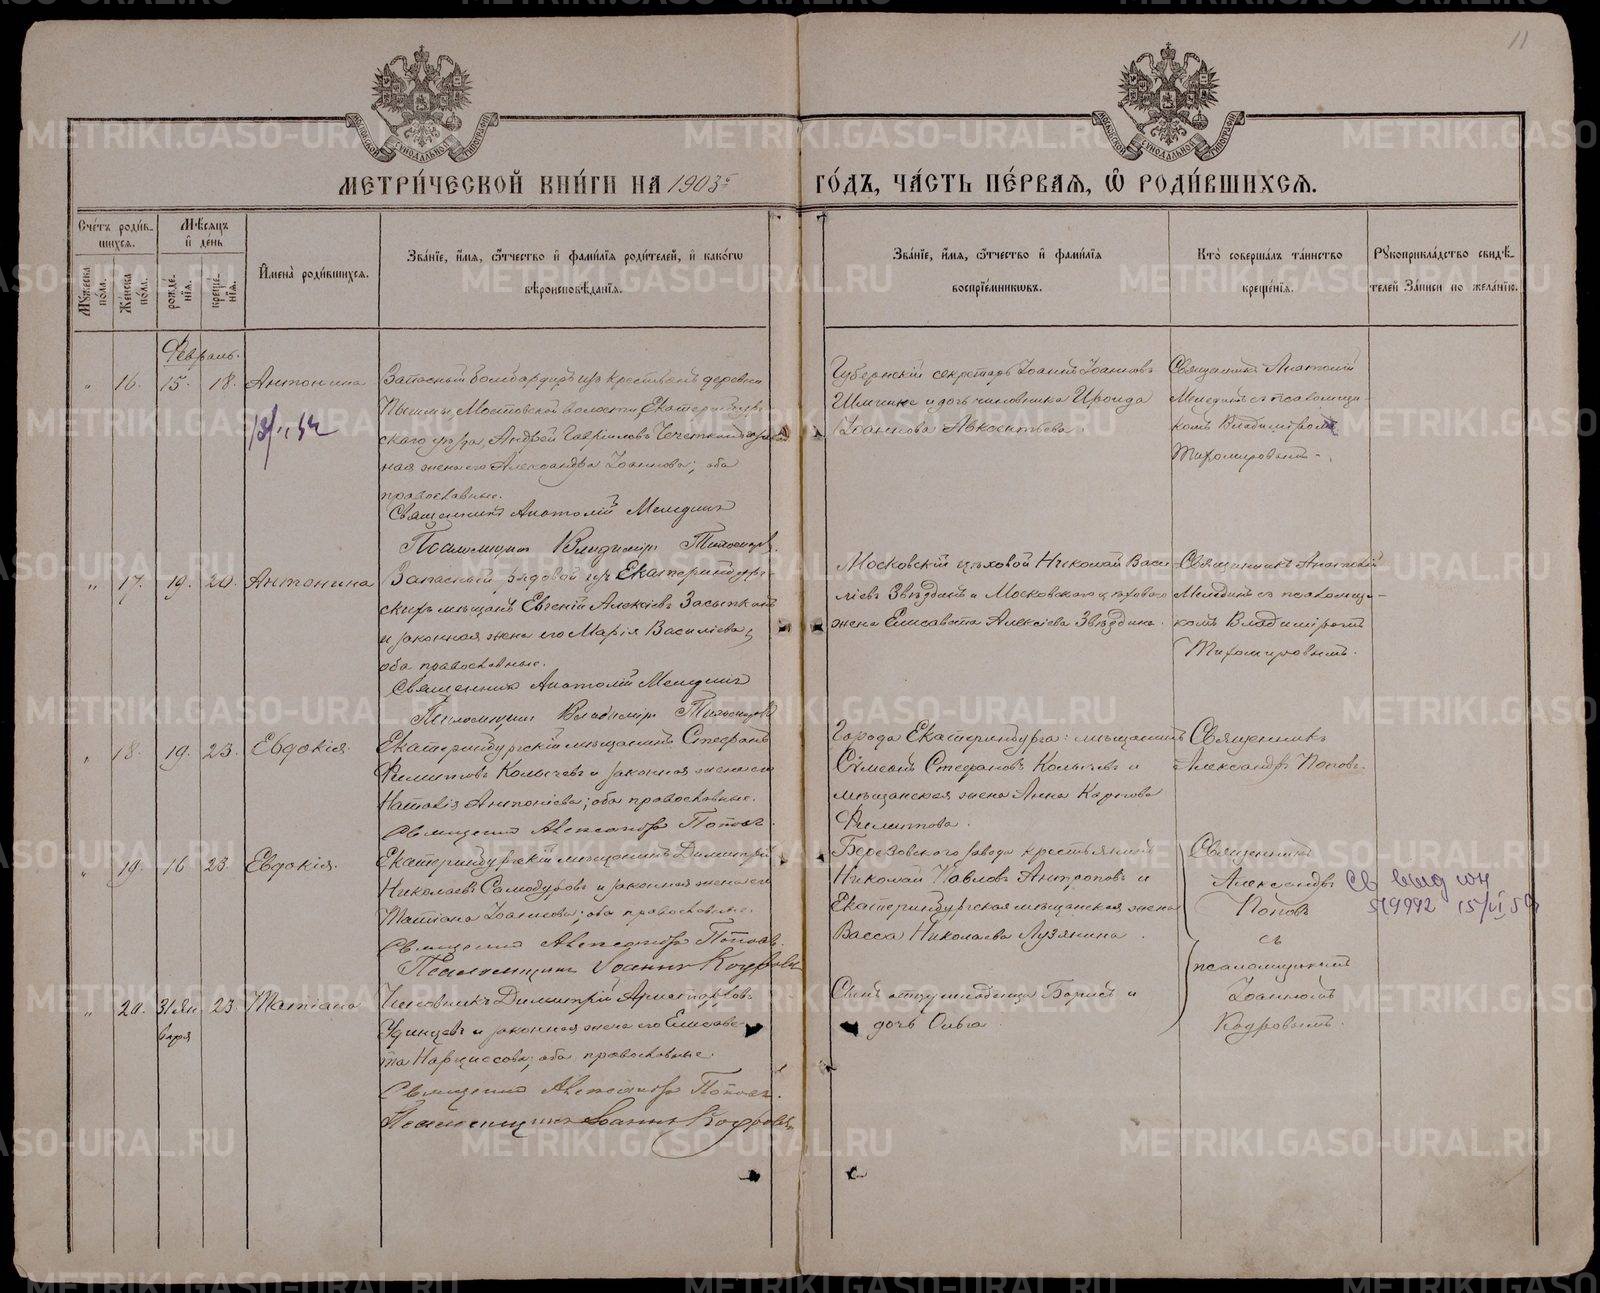 11
МЕТРИ́ЧЕСКОЙ КНИ́ГИ НА 1903 ГО́ДЪ, ЧА́СТЬ ПЕ́РВАѦ, Ѽ РОДИ́ВШИХСѦ.
Сче́тъ роди́вшихся.
Мꙋ́жеска по́ла.
Же́нска по́ла.
Мѣ́сяцъ и де́нь
рожде́нїя.
креще́нїя.
И҆мена̀ роди́вшихся.
Зва́нїе, и҆́мя, ѻ҆́тчество и҆ фами́лїя роди́телей, и҆ како́гѡ вѣроисповѣ́данїя.
Зва́нїе, и҆́мя, ѻ҆́тчество и҆ фами́лїя воспрїе́мникѡвъ.
Кто̀ соверша́лъ та́инство креще́нїя.
Рꙋкоприкла́дство свидѣ́телей за́писи по жела́нїю.
Февраль.
" 16. 15. 18. Антонина
Запасный бомбардиръ изъ крестьянъ деревни
Пышмы, Мостовской волости, Екатеринбург-
скаго уѣзда, Андрей Гавріиловъ
ная жена его Александра Іоаннова; оба
православные.
Священникъ Анатолій
Псаломщикъ Владиміръ Тихомировъ
Губернскій секретарь Іоаннъ Іоанновъ
и дочь чиновника Ироида
Іоаннова Авксентьева.
Священникъ Анатолій
съ псаломщи-
комъ Владиміромъ
Тихомировымъ.
" 17. 19. 20. Антонина
Запасный рядовой изъ Екатеринбург-
скихъ мѣщанъ Евгеній Алексіевъ Засыпкинъ
и законная жена его Марія Василіева,
оба православные.
Священникъ Анатолій
Псаломщикъ Владиміръ Тихомировъ
Московскій цеховой Николай Васи-
ліевъ Звѣздинъ и Московскаго цехового
жена Елисавета Алексіева Звѣздина.
Священникъ Анатолій
съ псаломщи-
комъ Владиміромъ
Тихомировымъ.
" 18. 19. 23. Евдокія.
Екатеринбургскій мѣщанинъ Стефанъ
Филипповъ Копычевъ и законная жена его
Наталія Антоніева; оба православные.
Священникъ Александръ Поповъ.
Города Екатеринбурга: мѣщанинъ
Сѵмеонъ Стефановъ Копычевъ и
мѣщанская жена Анна Карпова
Филиппова.
Священникъ
Александръ Поповъ.
" 19. 16 23. Евдокія.
Екатеринбургскій мѣщанинъ Димитрій
Николаевъ Самодуровъ и законная жена его
Татіана Іоаннова; оба православные.
Священникъ Александръ Поповъ.
Псаломщикъ Іоаннъ Кодровъ
Березовскаго завода крестьянинъ
Николай Павловъ Антроповъ и
Екатеринбургская мѣщанская жена
Васса Николаева Лузянина.
Священникъ
Александръ
Поповъ
съ
псаломщикомъ
Іоанномъ
Кодровымъ.
" 20. 31 Ян- 23. Татіана
варя
Чиновникъ Димитрій
и законная жена его Елисаве-
та Наркиссова; оба православные.
Священникъ Александръ Поповъ.
Псаломщикъ Іоаннъ Кодровъ
Сынъ Борисъ и
дочь Ольга.
METRIKI.GASO-URAL.RU